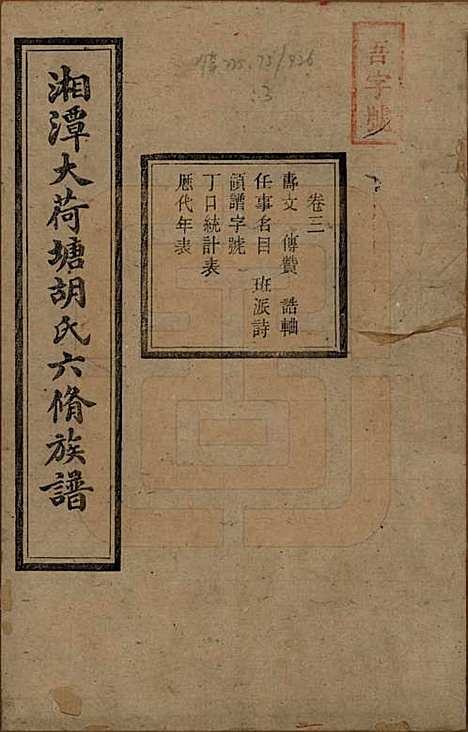 吾字號
卷三
壽文　傳贊　誥軸
任事名目　班派詩
領譜字號
丁口統計表
歷代年表
湘潭大荷塘胡氏六脩族譜